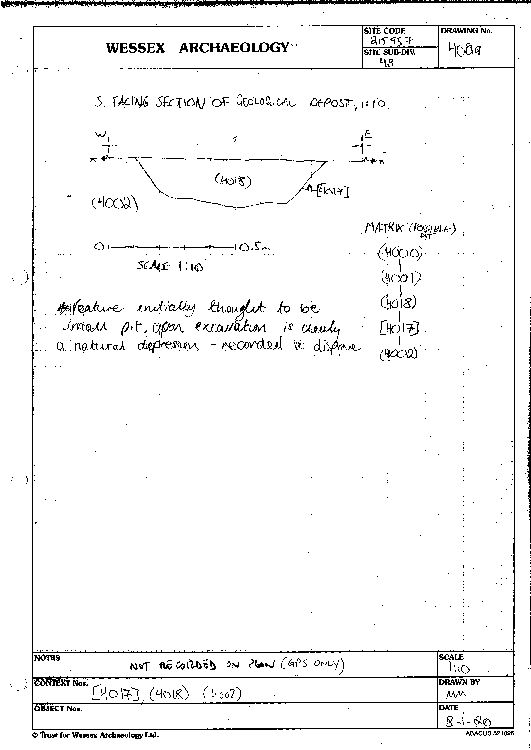 WESSEX ARCHAEOLOGY
SITE CODE
215957
SITE SUB-DIV.
48
DRAWING No.
S. FACING SECTION OF GEOLOGICAL DEPOSIT, 1:10.
W
E
(4018)
[4017]
(4002)
0 0.5m
SCALE 1:10
MATRIX (POSSIBLE PIT)
(4000)
(4001)
(4018)
[4017]
(4002)
Feature initially thought to be
small pit, upon excavation is clearly
a natural depression - recorded to disprove
NOTES
NOT RECORDED ON PLAN (GPS ONLY)
SCALE
1:10
CONTEXT Nos.
[4017], (4018) (4002)
DRAWN BY
MM
OBJECT Nos.
DATE
8-1-20
© Trust for Wessex Archaeology Ltd.